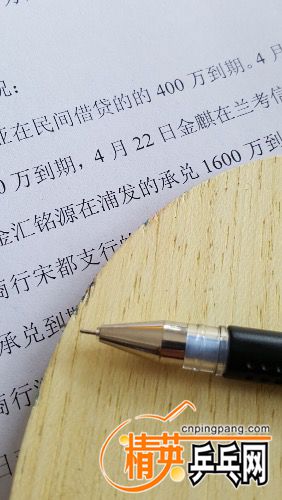 况：
在民间借贷的的400万到期。4
万到期，4月22日金麒在兰考信
金汇铭源在浦发的承兑1600万
商行宋都支行的
承兑到期
商行
日
cnpingpang.com
精英乒乓网